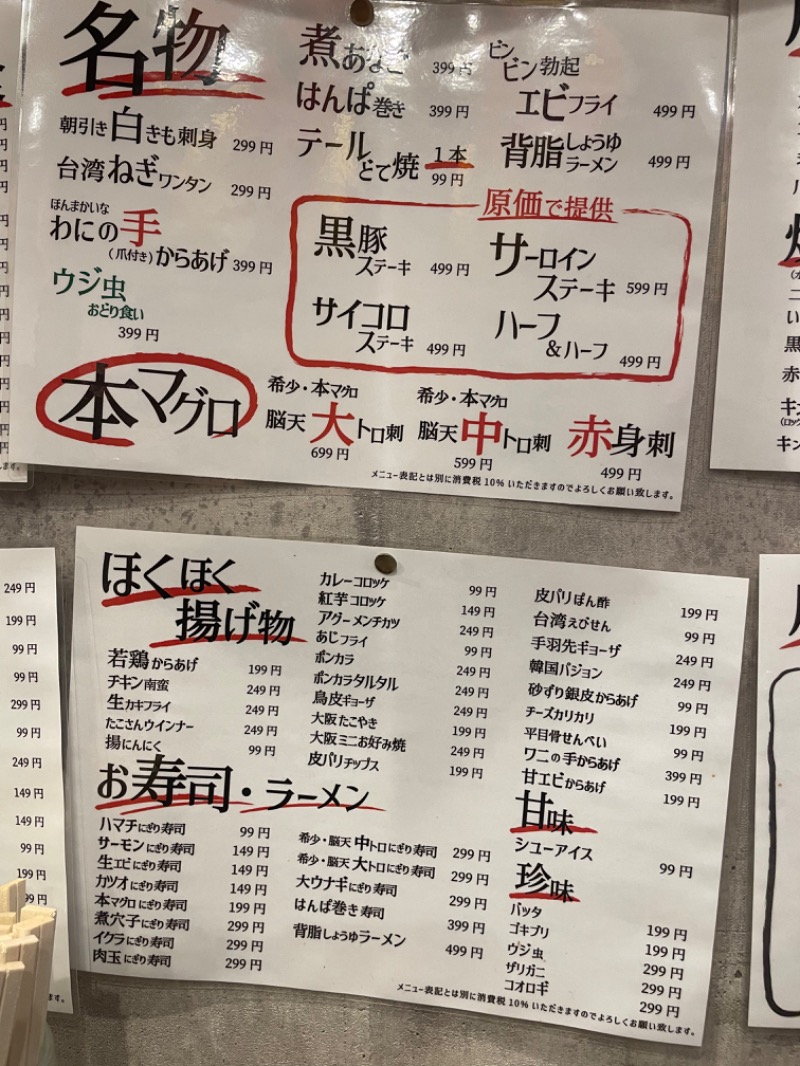 名物
朝引き白きも刺身 299円
台湾ねぎワンタン 299円
ほんまかいな
わにの手
(爪付き)からあげ 399円
ウジ虫
おどり食い
399円
煮あなご 399円
はんぱ巻き 399円
テール
とて焼 1本
99円
ビン
ビン勃起
エビフライ 499円
背脂しょうゆ
ラーメン 499円
原価で提供
黒豚
ステーキ 499円
サーロイン
ステーキ 599円
サイコロ
ステーキ 499円
ハーフ
&ハーフ 499円
本マグロ
希少・本マグロ
脳天大トロ刺
699円
希少・本マグロ
脳天中トロ刺
599円
赤身刺
499円
メニュー表記とは別に消費税10%いただきますのでよろしくお願い致します。
ほくほく
揚げ物
若鶏からあげ 199円
チキン南蛮 249円
生カキフライ 249円
たこさんウインナー 249円
揚にんにく 99円
カレーコロッケ 99円
紅芋コロッケ 149円
アグーメンチカツ 249円
あじフライ 99円
ポンカラ 249円
ポンカラタルタル 249円
鳥皮ギョーザ 249円
大阪たこやき 199円
大阪ミニお好み焼 249円
皮パリチップス 199円
皮パリぽん酢 199円
台湾えびせん 99円
手羽先ギョーザ 249円
韓国パジョン 249円
砂ずり銀皮からあげ 99円
チーズカリカリ 199円
平目骨せんべい 99円
ワニの手からあげ 399円
甘エビからあげ 199円
お寿司・ラーメン
ハマチにぎり寿司 99円
サーモンにぎり寿司 149円
生エビにぎり寿司 149円
カツオにぎり寿司 149円
本マグロにぎり寿司 199円
煮穴子にぎり寿司 299円
イクラにぎり寿司 299円
肉玉にぎり寿司 299円
希少・脳天中トロにぎり寿司 299円
希少・脳天大トロにぎり寿司 299円
大ウナギにぎり寿司 299円
はんぱ巻き寿司 399円
背脂しょうゆラーメン 499円
甘味
シューアイス 99円
珍味
バッタ 199円
ゴキブリ 199円
ウジ虫 299円
ザリガニ 299円
コオロギ 299円
メニュー表記とは別に消費税10%いただきますのでよろしくお願い致します。
249円
199円
99円
99円
299円
99円
249円
149円
149円
99円
199円
99円